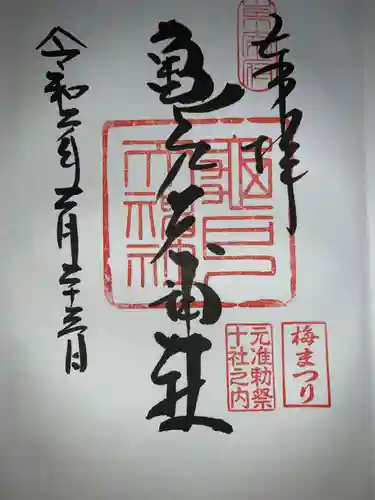 奉拝
亀戸天神社
令和六年二月二十三日
亀戸天神社
梅まつり
元准勅祭
十社之内